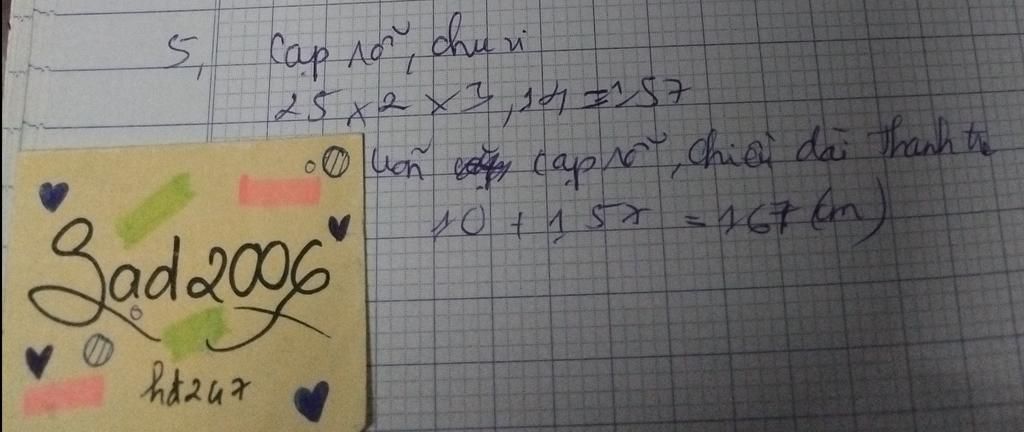 5, Cạp rổ, chu vi
25 x 2 x 3,14 = 157
uốn cạp rổ, chiều dài thanh tre
10 + 157 = 167 (m)
Sad2006
hd247